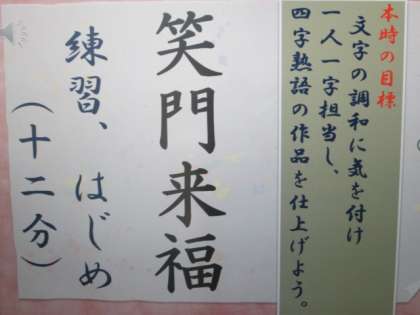 本時の目標
文字の調和に気を付け
一人一字担当し、
四字熟語の作品を仕上げよう。
笑門来福
練習、はじめ
(十二分)